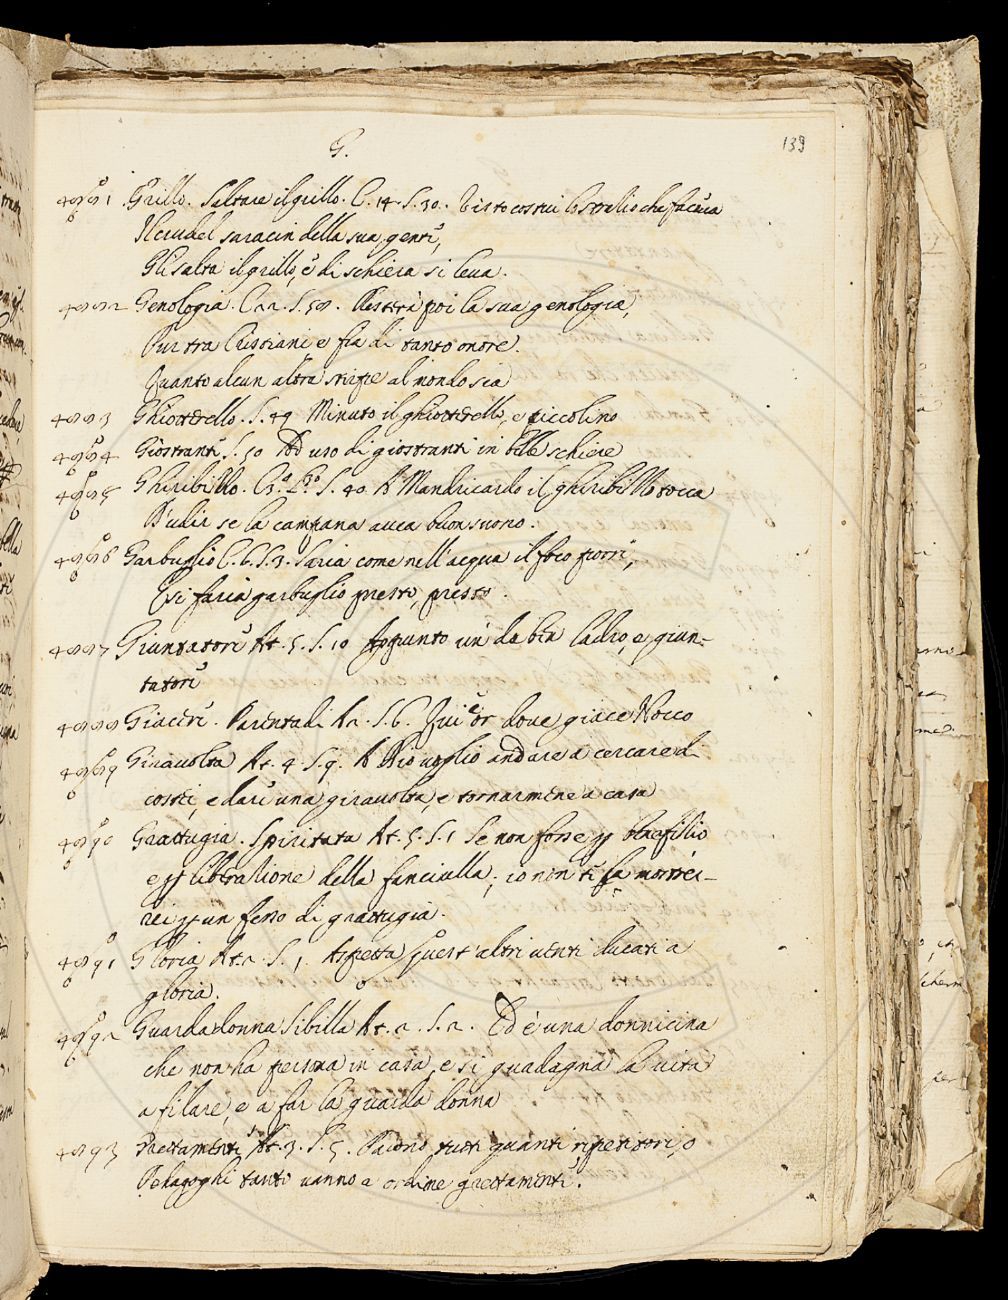 G.
139
4881 Grillo. Saltare il grillo. C. 14. S. 30. Visto costui lo stratio che faceua
Il crudel saracin della sua gente,
Gli salta il grillo, e di schiera si leua.
4882 Genologia. C. 22. S. 58. Resterà poi la sua genologia,
Pur tra Cristiani e fia di tanto onore.
Quanto alcun altra stirpe al mondo sia
4883 Ghiotterello. S. 49 Minuto il ghiotterello, e piccolino
4884 Giostranti S. 50 Ad uso di giostranti in belle schiere
4885 Ghiribillo. S. 40. A Mandricardo il ghiribillo tocca
D'udir se la campana auea buon suono.
4886 Garbuglio C. 6. S. 3. Saria come nell'acqua il foco porre,
E si faria garbuglio presto, presto.
4887 Giuntatore At. 5. S. 10 Aggiunto un da ben ladro, e giun-
tatore
4888 Giacere. Parentadi A. 2. S. 6. Qui e or doue giace Nocco
4889 Girauolta At. 4. S. 9. A Dio uoglio andare a cercare di
costei, e dare una girauolta, e tornarmene a casa
4890 Grattugia. Spiritata At. 5. S. 1 Se non fosse p benefitio
e p liberatione della fanciulla, io non ti
rei p un ferro di grattugia.
4891 Gloria At. 2. S. 1 Aspetta quest'altri uenti ducati a
gloria.
4892 Guardadonna Sibilla At. 2. S. 2. Ed è una donnicina
che non ha persona in casa, e si guadagna la uita
a filare, e a far la guarda donna
4893 Grettamente At. 3. S. 5. Pacono tutti quanti ripetitori, o
Pedagoghi tanto uanno a ordine grettamente.